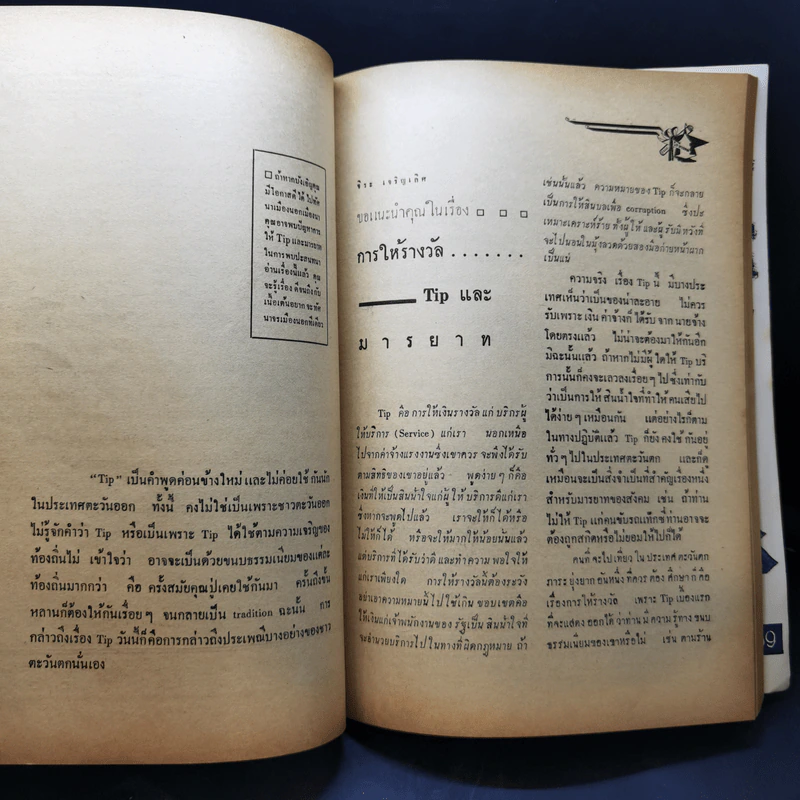 □ ถ้าหากบังเอิญคุณ
มีโอกาสดีได้ ไปทัศ
นาเมืองนอกเมืองนา
คุณอาจพบปัญหาการ
ให้ Tip และมารยาท
ในการพบปะสนทนา
อ่านเรื่องนี้แล้ว คุณ
จะรู้เรื่อง ดีจนถึงกับ
เนื้อเต้นอยากจะทัศ
นาจรเมืองนอกทีเดียว
"Tip" เป็นคำพูดค่อนข้างใหม่ และไม่ค่อยใช้ กันนัก
ในประเทศตะวันออก ทั้งนี้ คงไม่ใช่เป็นเพราะชาวตะวันออก
ไม่รู้จักคำว่า Tip หรือเป็นเพราะ Tip ได้ใช้ตามความเจริญของ
ท้องถิ่นไม่ เข้าใจว่า อาจจะเป็นด้วยขนบธรรมเนียมของแต่ละ
ท้องถิ่นมากกว่า คือ ครั้งสมัยคุณปู่เคยใช้กันมา ครั้นถึงชั้น
หลานก็ต้องให้กันเรื่อยๆ จนกลายเป็น tradition ฉะนั้น การ
กล่าวถึงเรื่อง Tip วันนี้ก็คือการกล่าวถึงประเพณีบางอย่างของชาว
ตะวันตกนั่นเอง
จิระ เจริญเลิศ
ขอแนะนำคุณในเรื่อง □ □ □
การให้รางวัล . . . . . . .
Tip และ
มารยาท
Tip คือ การให้เงินรางวัล แก่ บริกรผู้
ให้บริการ (Service) แก่เรา นอกเหนือ
ไปจากค่าจ้างแรงงานซึ่งเขาควร จะพึงได้รับ
ตามสิทธิของเขาอยู่แล้ว พูดง่ายๆ ก็คือ
เงินที่ให้เป็นสินน้ำใจแก่ผู้ ให้ บริการดีแก่เรา
ซึ่งหากจะพูดไปแล้ว เราจะให้ก็ได้หรือ
ไม่ให้ก็ได้ หรือจะให้มากให้น้อยนั้นแล้ว
แต่บริการที่ได้รับว่าดี และทำความ พอใจให้
แก่เราเพียงใด การให้รางวัลนี้ต้องระวัง
อย่าเอาความหมายนี้ไปใช้เกิน ขอบเขตคือ
ให้เงินแก่เจ้าพนักงานของ รัฐเป็น สินน้ำใจที่
จะอำนวยบริการไปในทางที่ผิดกฎหมาย ถ้า
เช่นนั้นแล้ว ความหมายของ Tip ก็จะกลาย
เป็นการให้สินบนเพื่อ corruption ซึ่งปะ
เหมาะเคราะห์ร้าย ทั้งผู้ให้ และผู้ รับมีหวังที่
จะไปนอนในมุ้งลวดด้วยสองมือก่ายหน้าผาก
เป็นแน่
ความจริง เรื่อง Tip นี้ มีบางประ
เทศเห็นว่าเป็นของน่าละอาย ไม่ควร
รับเพราะ เงิน ค่าจ้างก็ ได้รับ จาก นายจ้าง
โดยตรงแล้ว ไม่น่าจะต้องมาให้กันอีก
มิฉะนั้นแล้ว ถ้าหากไม่มีผู้ ใดให้ Tip บริ
การนั้นก็คงจะเลวลงเรื่อยๆ ไป ซึ่งเท่ากับ
ว่าเป็นการให้ สินน้ำใจที่ทำให้ คนเสียไป
ได้ง่ายๆ เหมือนกัน แต่อย่างไรก็ตาม
ในทางปฏิบัติแล้ว Tip ก็ยัง คงใช้ กันอยู่
ทั่วๆ ไปในประเทศตะวันตก และก็ดู
เหมือนจะเป็นสิ่งจำเป็นที่สำคัญเรื่องหนึ่ง
สำหรับมารยาทของสังคม เช่น ถ้าท่าน
ไม่ให้ Tip แก่คนขับรถแท๊กซี่ท่านอาจจะ
ต้องถูกสกัดหรือไม่ยอมให้ไปก็ได้
คนที่ จะไปเที่ยว ใน ประเทศ ตะวันตก
ภาระ ยุ่งยาก อันหนึ่ง ที่ควร ต้อง ศึกษา ก็ คือ
เรื่องการให้รางวัล เพราะ Tip เบื้องแรก
ที่จะแสดง ออกได้ว่าท่าน มี ความ รู้ทาง ขนบ
ธรรมเนียมของเขาหรือไม่ เช่น ตามร้าน